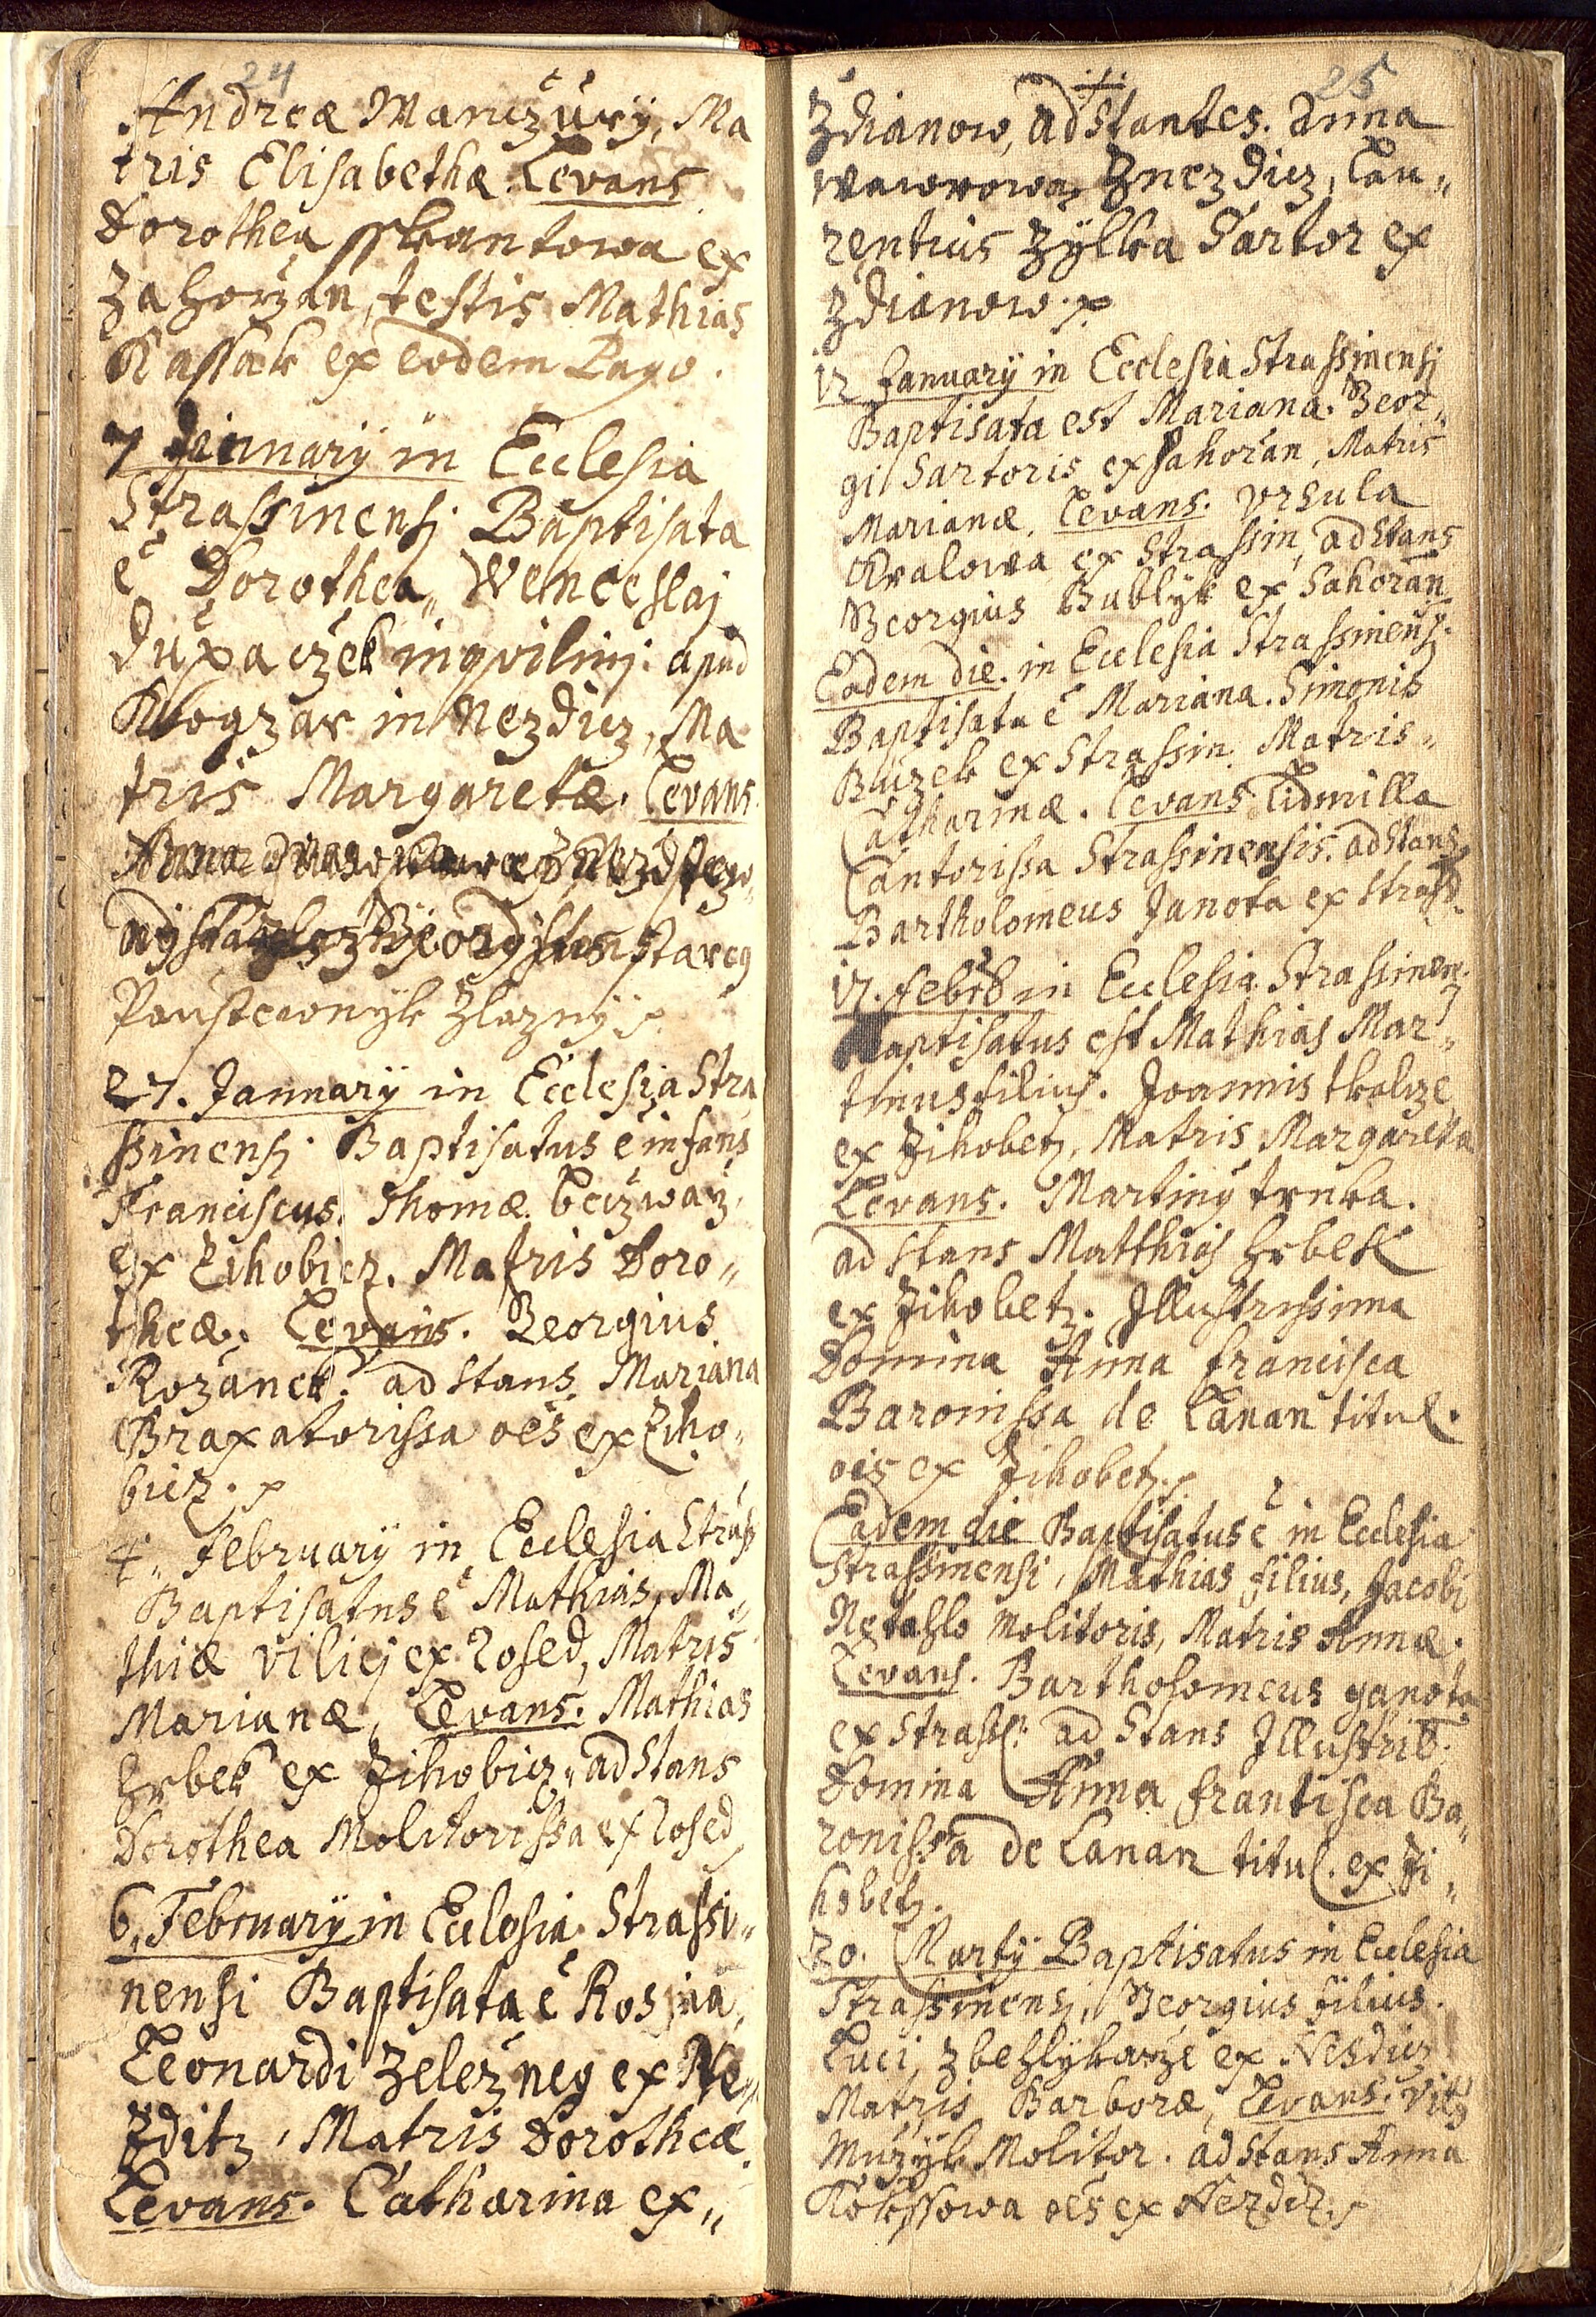 24
Andreæ Manczury, Ma
tris Elisabethæ. Levans
Dorothea sskantowa ex
Zahorzan, testis Mathias
Kassak ex eodem Pago.
7 January in Ecclesia
Strassinensj Baptisata
ē Dorothea„ Wenceslaj
Duxaczek inqvilinj. apud
in Nezdicz, Ma
tris Margaretæ. Levans.
Anna
Paustewnyk Zlazny
27. January in Ecclesia Stra
ssinensj. Baptisatus ē infans
Franciscus. Thomæ
ex Zihobicz. Matris Doro„
theæ. Levans. Georgius
Rozanek. adstans. Mariana
Braxatorissa oēs ex Ziho„
bicz.
4„ February in Ecclesia Strass
Baptisatus ē Mathias, Ma„
thiæ vilicj ex Rosed, Matris
Marianæ, Levans. Mathias
Hrbek ex Zihobicz„ adstans
Dorothea Molitorissa ex Rosed
6. February in Ecclesia Strassi„
nensi Baptisata ē Rosina,
Leonardi Zelezneg ex Ne„
zditz, Matris Dorotheæ.
Levans. Catharina ex„
25
Zdianow, adstantes. Anna
Wawrowa z Nezdicz, Lau„
rentius Zylka Sartor ex
Zdianow.
12 January in Ecclesia Strassinensj
Baptisata est Mariana. Geor„
gi Sartoris ex Sahoran, Matris
Marianæ. Levans. Vrsula
Kralowa ex Strassin, adstans
Georgius Bublyk ex Sahoran
Eadem die. in Ecclesia Strassinensj.
Baptisata ē Mariana. Simonis
Buzek ex Strassin. Matris„
Catharinæ. Levans Lidmilla
Cantorissa Strassinensis. adstans
Bartholomeus Janota ex Strass.
12. Febr in Ecclesia Strassinen.
Baptisatus est Mathias Mar„
tinus filius. Joannis tkalcze
ex Zihobetz, Matris Margareta
Levans. Martiny trnka.
ad stans Matthias Hrbek
ex Zihobetz. Illustrissima
Domina Anna Francisca
Baronissa de Lanan titul.
oēs ex Zihobetz.
Eadem die Baptisatus ē in Ecclesia
Strassinensi, Mathias filius, Jacobi
Netahlo Molitoris, Matris Annæ.
Levans. Bartholomeus ganota
ex Strass. ad Stans Illustris.
Domina Anna Frantisca Ba„
ronissa de Lanan titul. ex Zi„
hobetz.
20. Marty Baptisatus in Ecclesia
Strassinensj, Georgius filius.
Luci, zbehlykarze ex Nesdicz
Matris Barboræ, Levans. Vitus
Muzyk Molitor. adstans Anna
Kolessowa oēs ex Nezdicz.